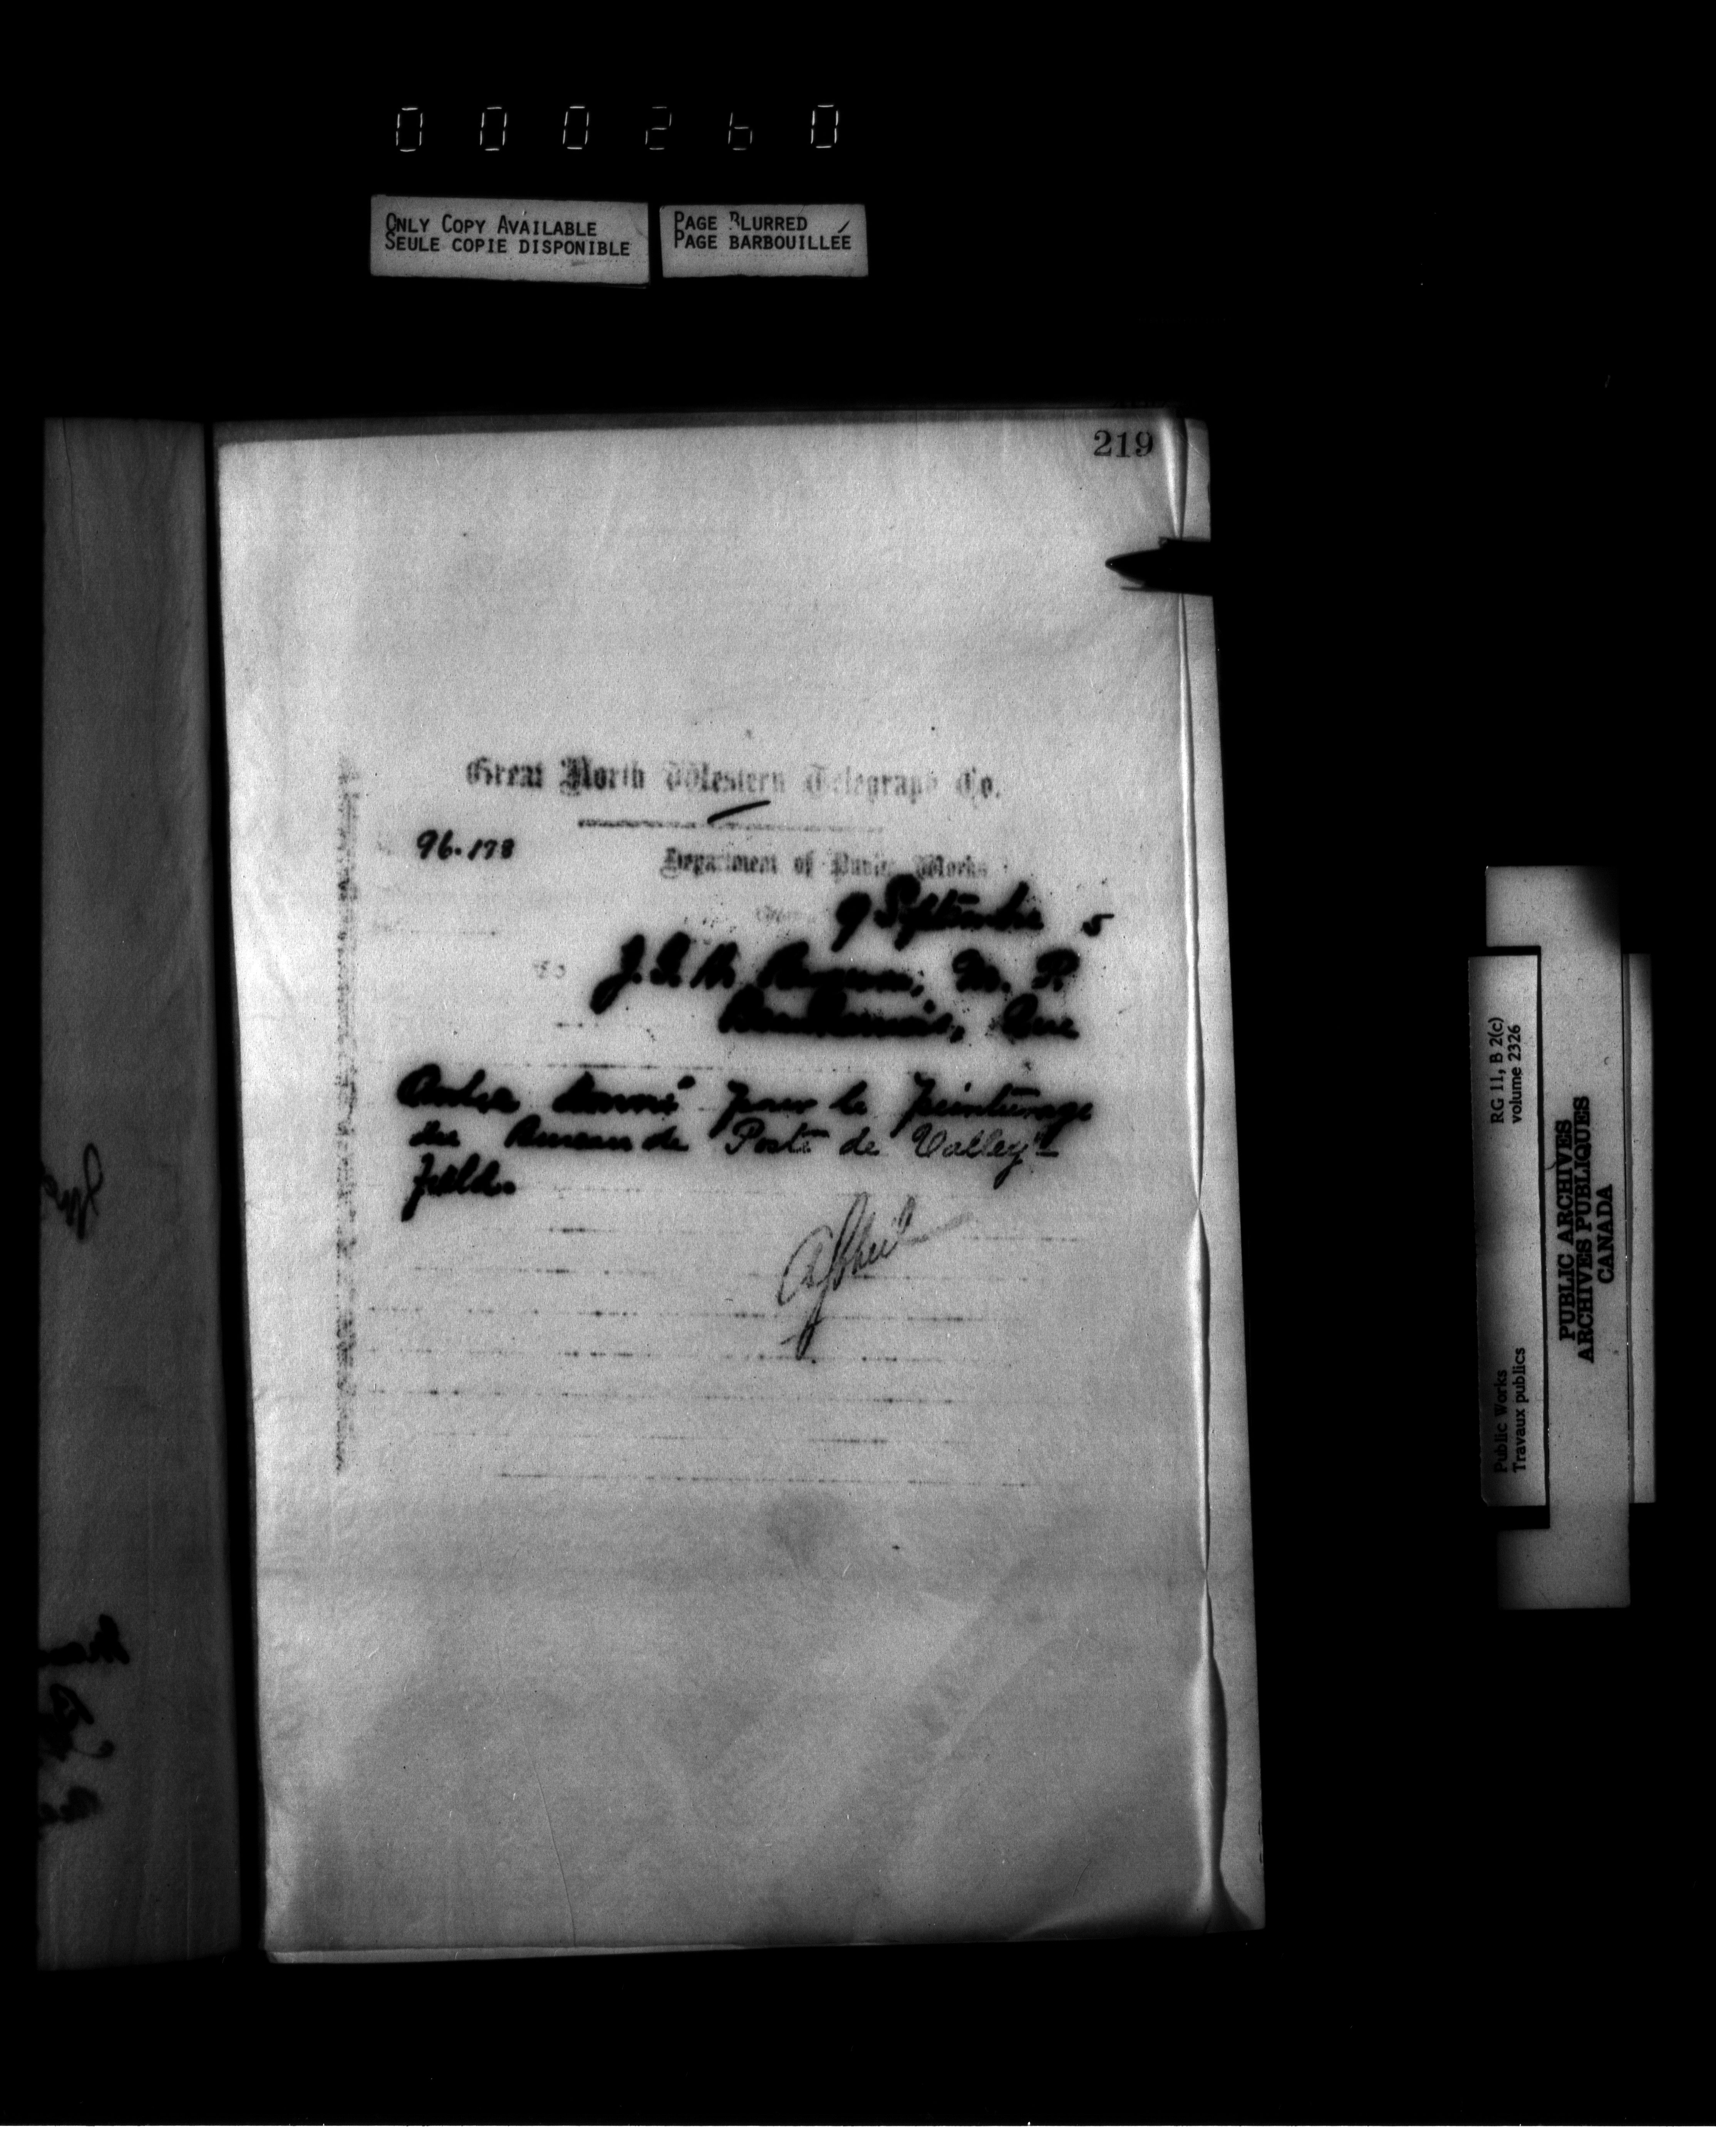 000260
ONLY COPY AVAILABLE
SEULE COPIE DISPONIBLE
PAGE BLURRED
PAGE BARBOUILLÉE
219
Great North Western Telegraph Co.
96.178
Department of Public Works
9 Septembre 5
To J. G. H. Bergeron, M. P.
Beauharnois, Que
Ordre donné pour le peinturage
du Bureau de Poste de Valley-
field.
RG 11, B 2(c)
volume 2326
Public Works
Travaux publics
PUBLIC ARCHIVES
ARCHIVES PUBLIQUES
CANADA